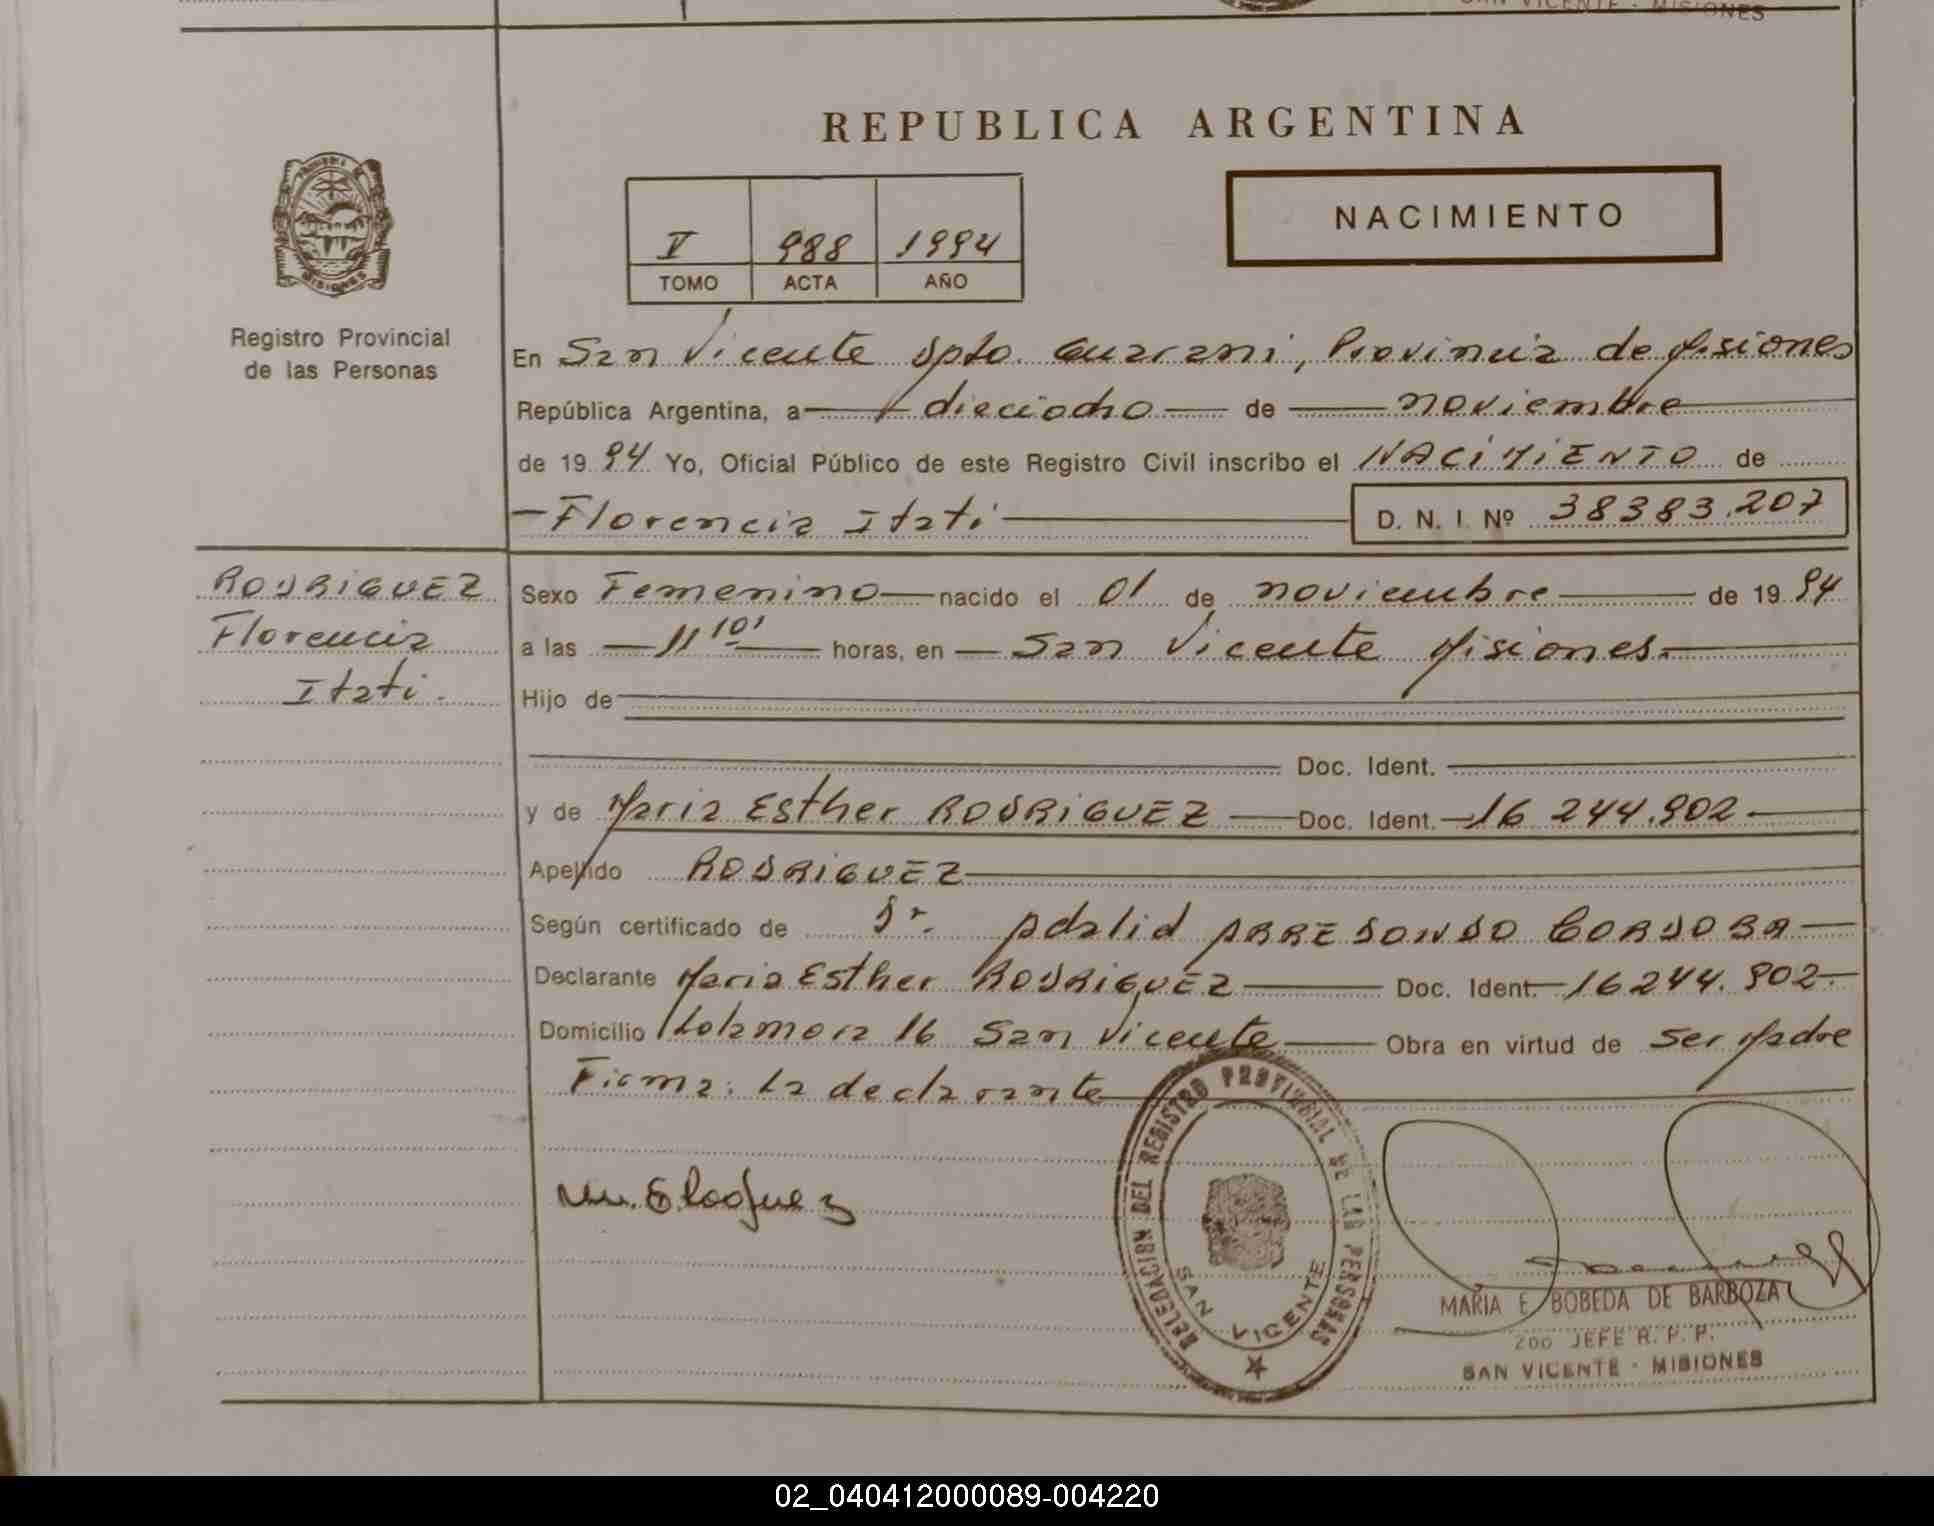 SAN VICENTE - MISIONES
REPUBLICA ARGENTINA
NACIMIENTO
V 988 1994
TOMO ACTA AÑO
MISIONES
Registro Provincial
de las Personas
En San Vicente Dpto. Guarani, Provincia de Misiones
República Argentina, a dieciocho de noviembre
de 1994 Yo, Oficial Público de este Registro Civil inscribo el NACIMIENTO de
Florencia Itati D. N. I. Nº 38383.207
RODRIGUEZ
Florencia
Itati.
Sexo Femenino nacido el 01 de noviembre de 1994
a las 11 10' horas, en San Vicente Misiones.
Hijo de
Doc. Ident.
y de Maria Esther RODRIGUEZ Doc. Ident. 16 244.902
Apellido RODRIGUEZ
Según certificado de Dr. Adalid ARREDONDO CORDOBA
Declarante Maria Esther RODRIGUEZ Doc. Ident. 16244.902
Domicilio 16 San Vicente Obra en virtud de ser Madre
Firma: La declarante
DELEGACION DEL REGISTRO PROVINCIAL DE LAS PERSONAS
SAN VICENTE
MARIA E. BOBEDA DE BARBOZA
2DO JEFE R. P. P.
SAN VICENTE - MISIONES
02_040412000089-004220